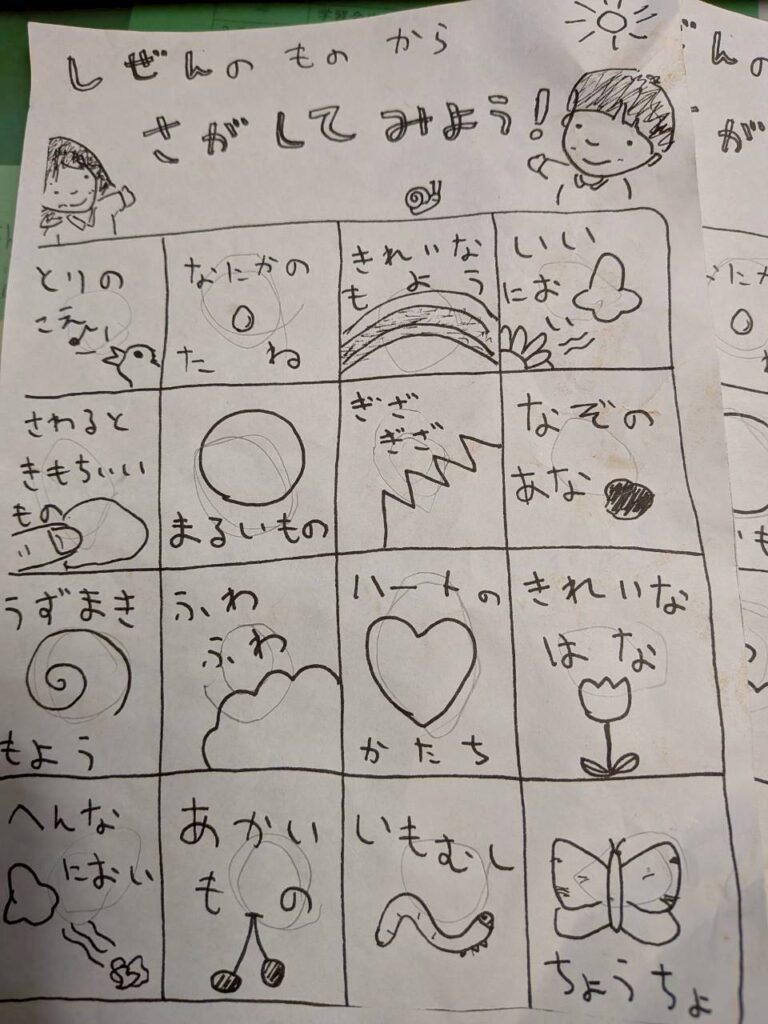 しぜんの もの から
さがして みよう!
とりの
こえ
なにかの
たね
きれいな
もよう
いい
におい
さわると
きもちいい
もの
まるいもの
ぎざ
ぎざ
なぞの
あな
うずまき
もよう
ふわ
ふわ
ハートの
かたち
きれいな
はな
へんな
におい
あかい
もの
いもむし
ちょうちょ